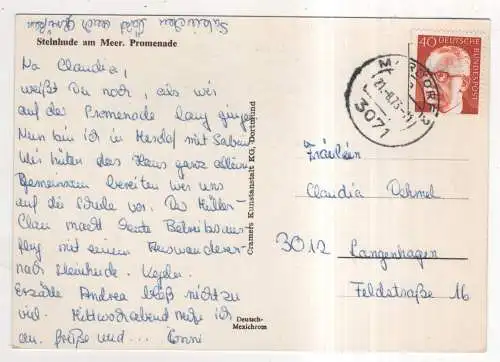 Steinhude am Meer. Promenade
Na Claudia,
weißt Du noch, als wir
auf der Promenade lang gingen
Nun bin ich in Mardorf mit Sabine
Wir hüten das Haus ganz alleine
Gemeinsam bereiten wir uns
auf die Schule vor. Der Müller-
Clan macht heute Betriebsaus-
flug mit einem
nach Steinhude.
Erzähle Andrea bloß nicht zu
viel. Mittwochabend rufe ich
an. Grüße und ... Conni
Cramers Kunstanstalt KG, Dortmund
Deutsch-
Mexichrom
40
DEUTSCHE
BUNDESPOST
MARDORF
3071
Fräulein
Claudia Dehmel
3012 Langenhagen
Feldstraße 16